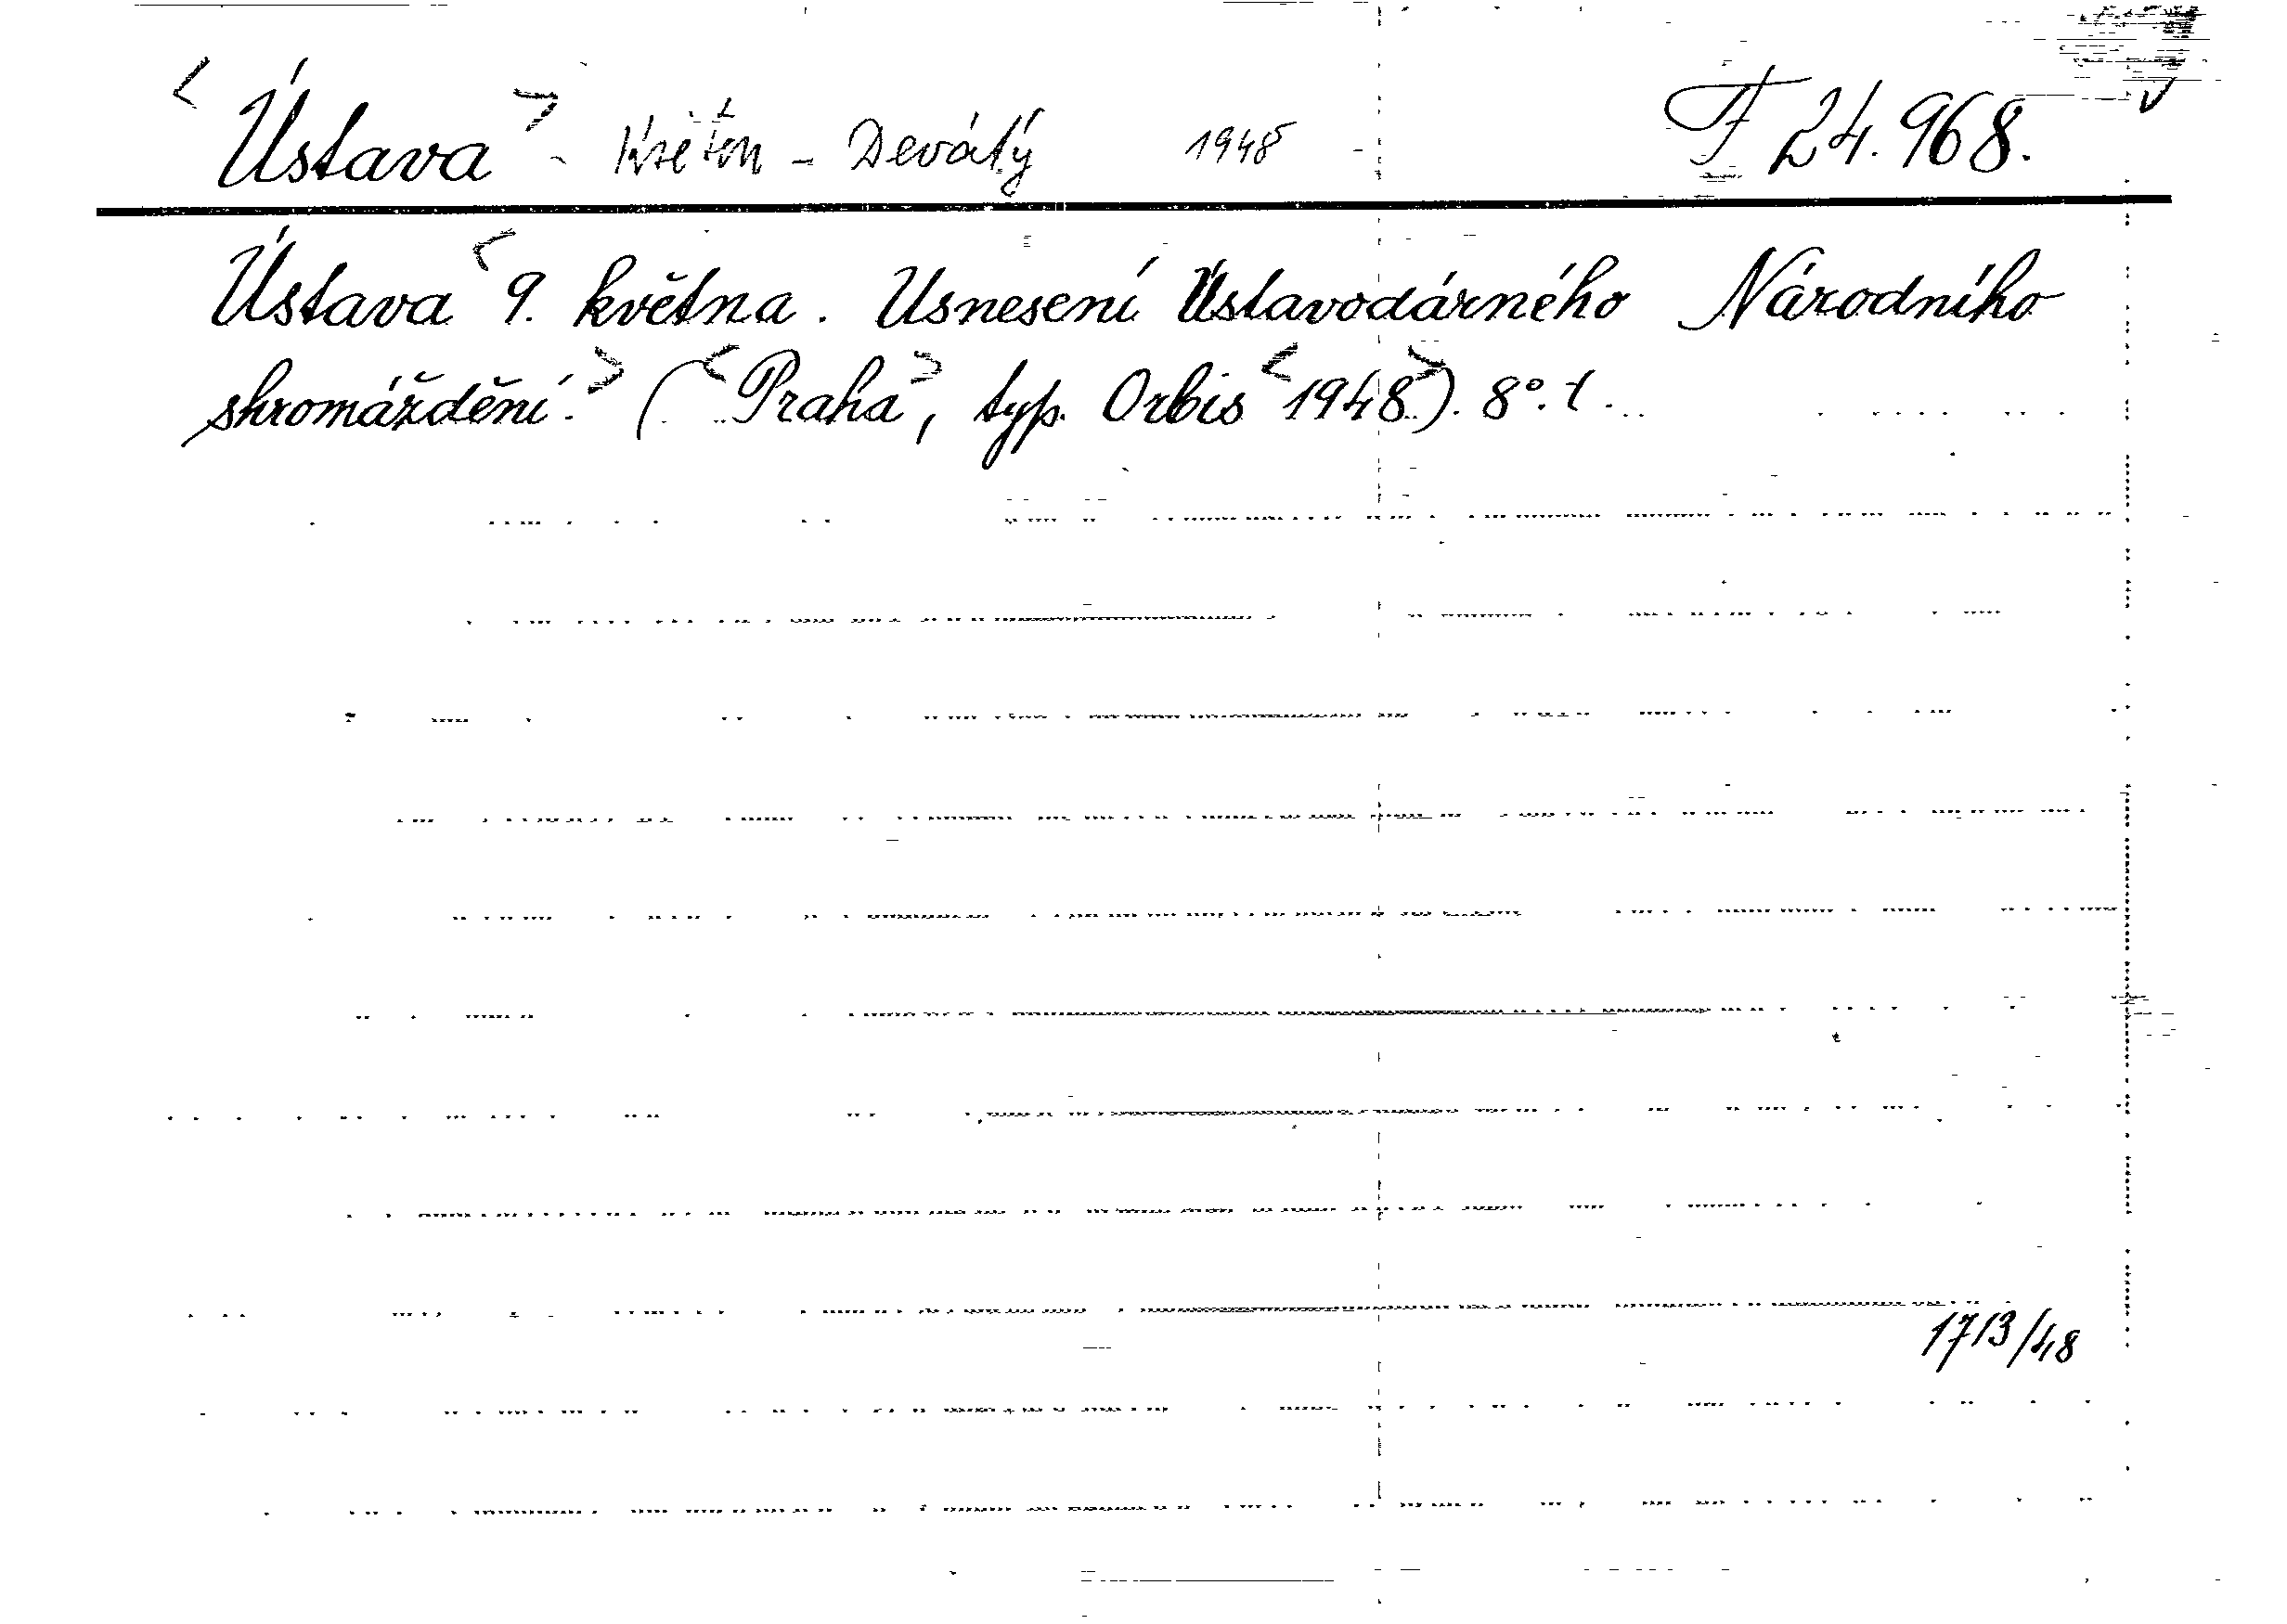 <Ústava> - Květen - Devátý 1948 F 24.968.
Ústava <9. května. Usnesení Ústavodárného Národního
shromáždění.> (<Praha>, typ. Orbis <1948>). 8°.
1713/48